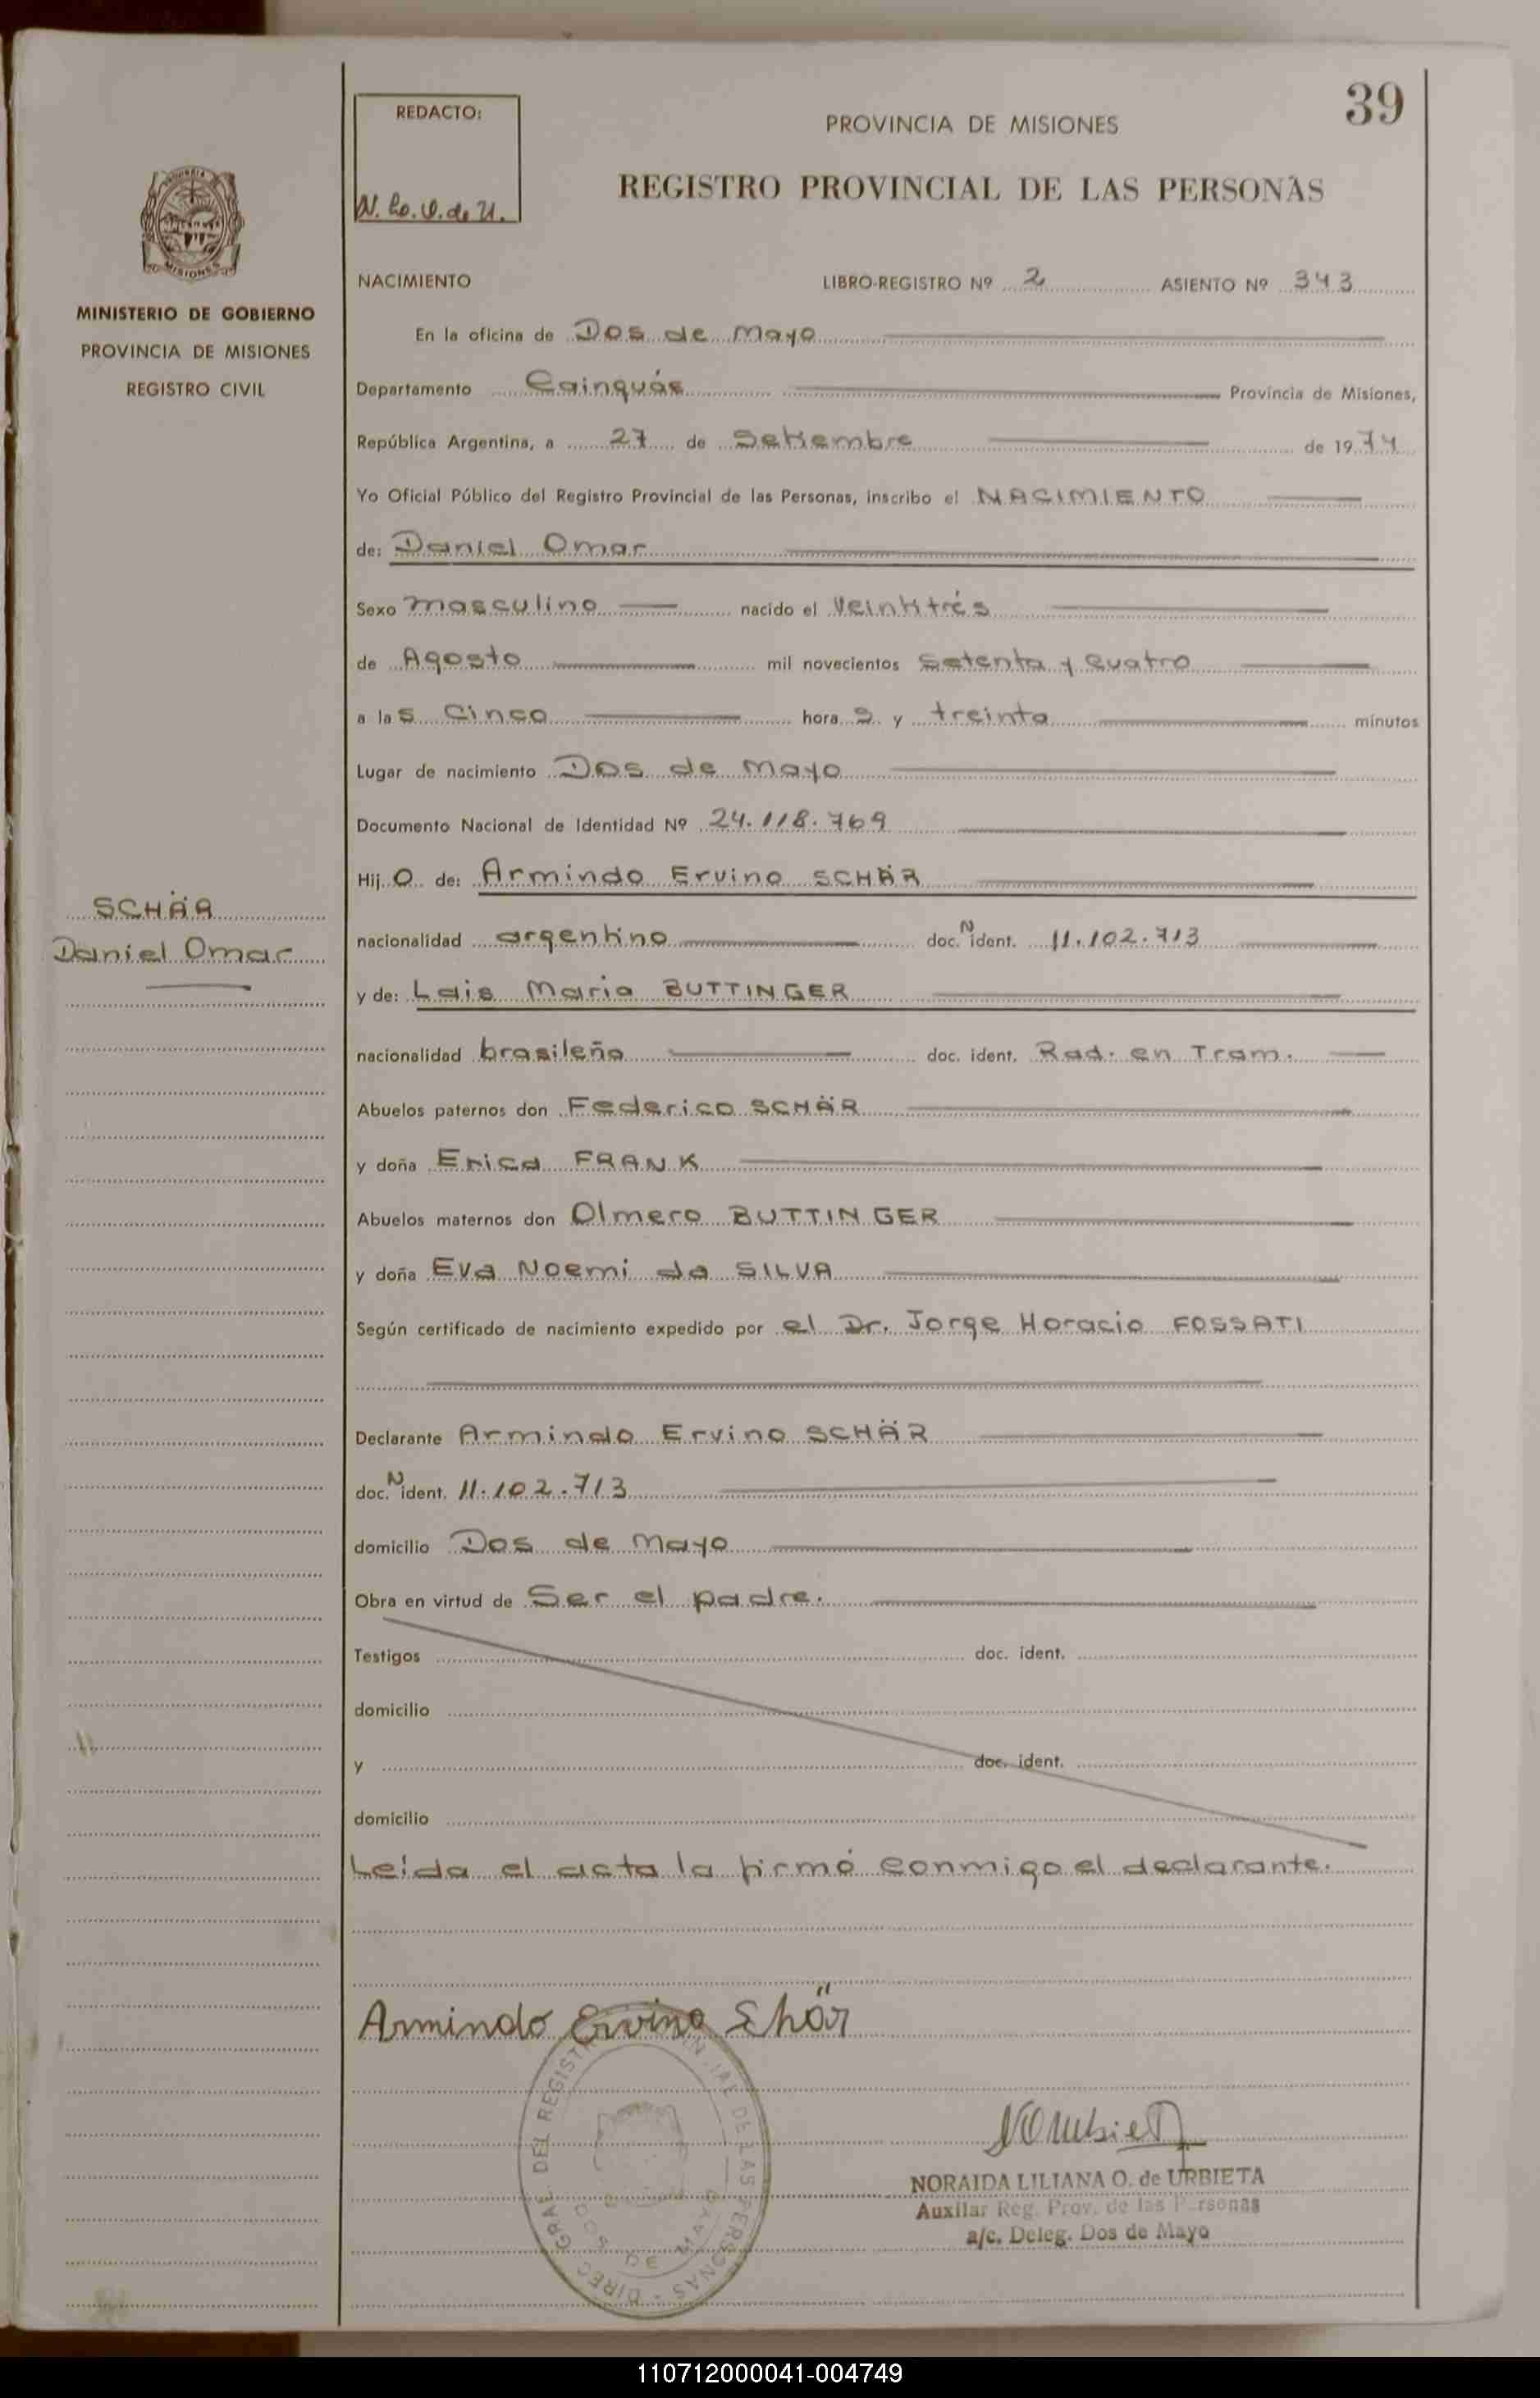 39
REDACTO:
PROVINCIA DE MISIONES
REGISTRO PROVINCIAL DE LAS PERSONAS
MISIONES
MINISTERIO DE GOBIERNO
PROVINCIA DE MISIONES
REGISTRO CIVIL
NACIMIENTO LIBRO-REGISTRO Nº 2 ASIENTO Nº 343
En la oficina de Dos de Mayo
Departamento Cainguás Provincia de Misiones,
República Argentina, a 27 de Setiembre de 1974
Yo Oficial Público del Registro Provincial de las Personas, inscribo el NACIMIENTO
de: Daniel Omar
Sexo masculino nacido el Veintitrés
de Agosto mil novecientos Setenta y Cuatro
a las Cinco horas y treinta minutos
Lugar de nacimiento Dos de Mayo
Documento Nacional de Identidad Nº 24.118.769
Hijo de: Armindo Ervino SCHÄR
SCHÄR
Daniel Omar
nacionalidad argentino doc. N ident. 11.102.713
y de: Lais Maria BUTTINGER
nacionalidad brasileña doc. ident. Rad. en Tram.
Abuelos paternos don Federico SCHÄR
y doña Erica FRANK
Abuelos maternos don Olmero BUTTINGER
y doña Eva Noemi da SILVA
Según certificado de nacimiento expedido por el Dr. Jorge Horacio FOSSATI
Declarante Armindo Ervino SCHÄR
doc. N ident. 11.102.713
domicilio Dos de Mayo
Obra en virtud de Ser el padre.
Testigos doc. ident.
domicilio
y doc. ident.
domicilio
Leída el acta la firmó conmigo el declarante.
Armindo Ervino Shär
DIREC. GRAL. DEL REGISTRO DE LAS PERSONAS
DOS DE MAYO
NORAIDA LILIANA O. de URBIETA
Auxiliar Reg. Prov. de las Personas
a/c. Deleg. Dos de Mayo
110712000041-004749